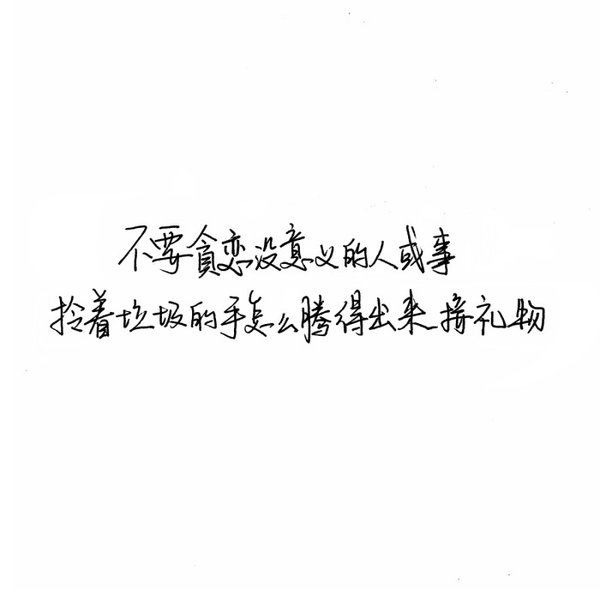 不要贪恋没意义的人或事
拎着垃圾的手怎么腾得出来接礼物